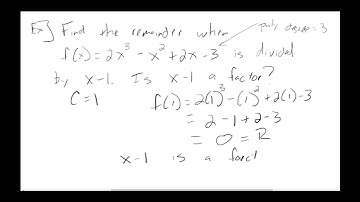 Ex] Find the remainder when
poly degree = 3
f(x) = 2x³ - x² + 2x - 3 is divided
by x-1. Is x-1 a factor?
C = 1
f(1) = 2(1)³ - (1)² + 2(1) - 3
= 2 - 1 + 2 - 3
= 0 = R
x-1 is a fact